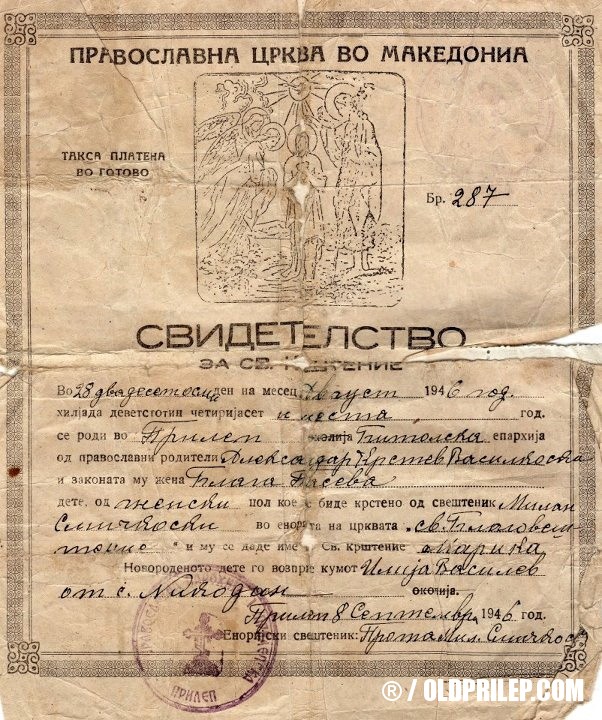 ПРАВОСЛАВНА ЦРКВА ВО МАКЕДОНИА
ТАКСА ПЛАТЕНА
ВО ГОТОВО
Бр. 287
СВИДЕТЕЛСТВО
ЗА СВ. КРШТЕНИЕ
Во 28 двадесетосми ден на месец Август 1946 год.
хилјада деветстотин четиријасет и шеста год.
се роди во Прилеп околија Битолска епархија
од православни родители Александар Крстев Василкоски
и законата му жена Блага Басева
дете, од женски пол кое биде крстено од свештеник Милан
Смичкоски во енората на црквата „св. Благовеш-
тение“ и му се даде име Св. крштение Марика
Новороденото дете го возприе кумот Илија Василев
от с. околија.
Прилеп 8 Септемвр. 1946 год.
Енориски свештеник: Прота Мил. Смичкос
ПРИЛЕП
® / OLDPRILEP.COM